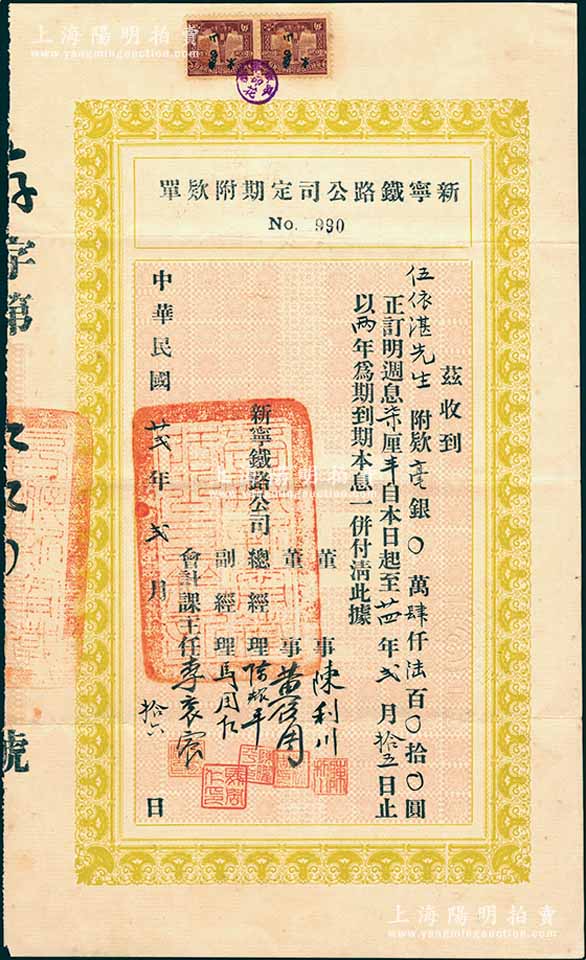 上海陽明拍賣
www.yangmingauction.com
新寧鐵路公司定期附欵單
No. 990
茲收到
伍依湛先生附欵毫銀〇萬肆仟伍百〇拾〇圓
正訂明週息柒厘半自本日起至廿四年弍月拾五日止
以兩年為期到期本息一併付清此據
董事陳利川
董事黃
新寧鐵路公司總經理陳
副經理馬
會計課主任李
中華民國廿弍年弍月拾六日
存字第
號
上海陽明拍賣
www.yangmingauction.com